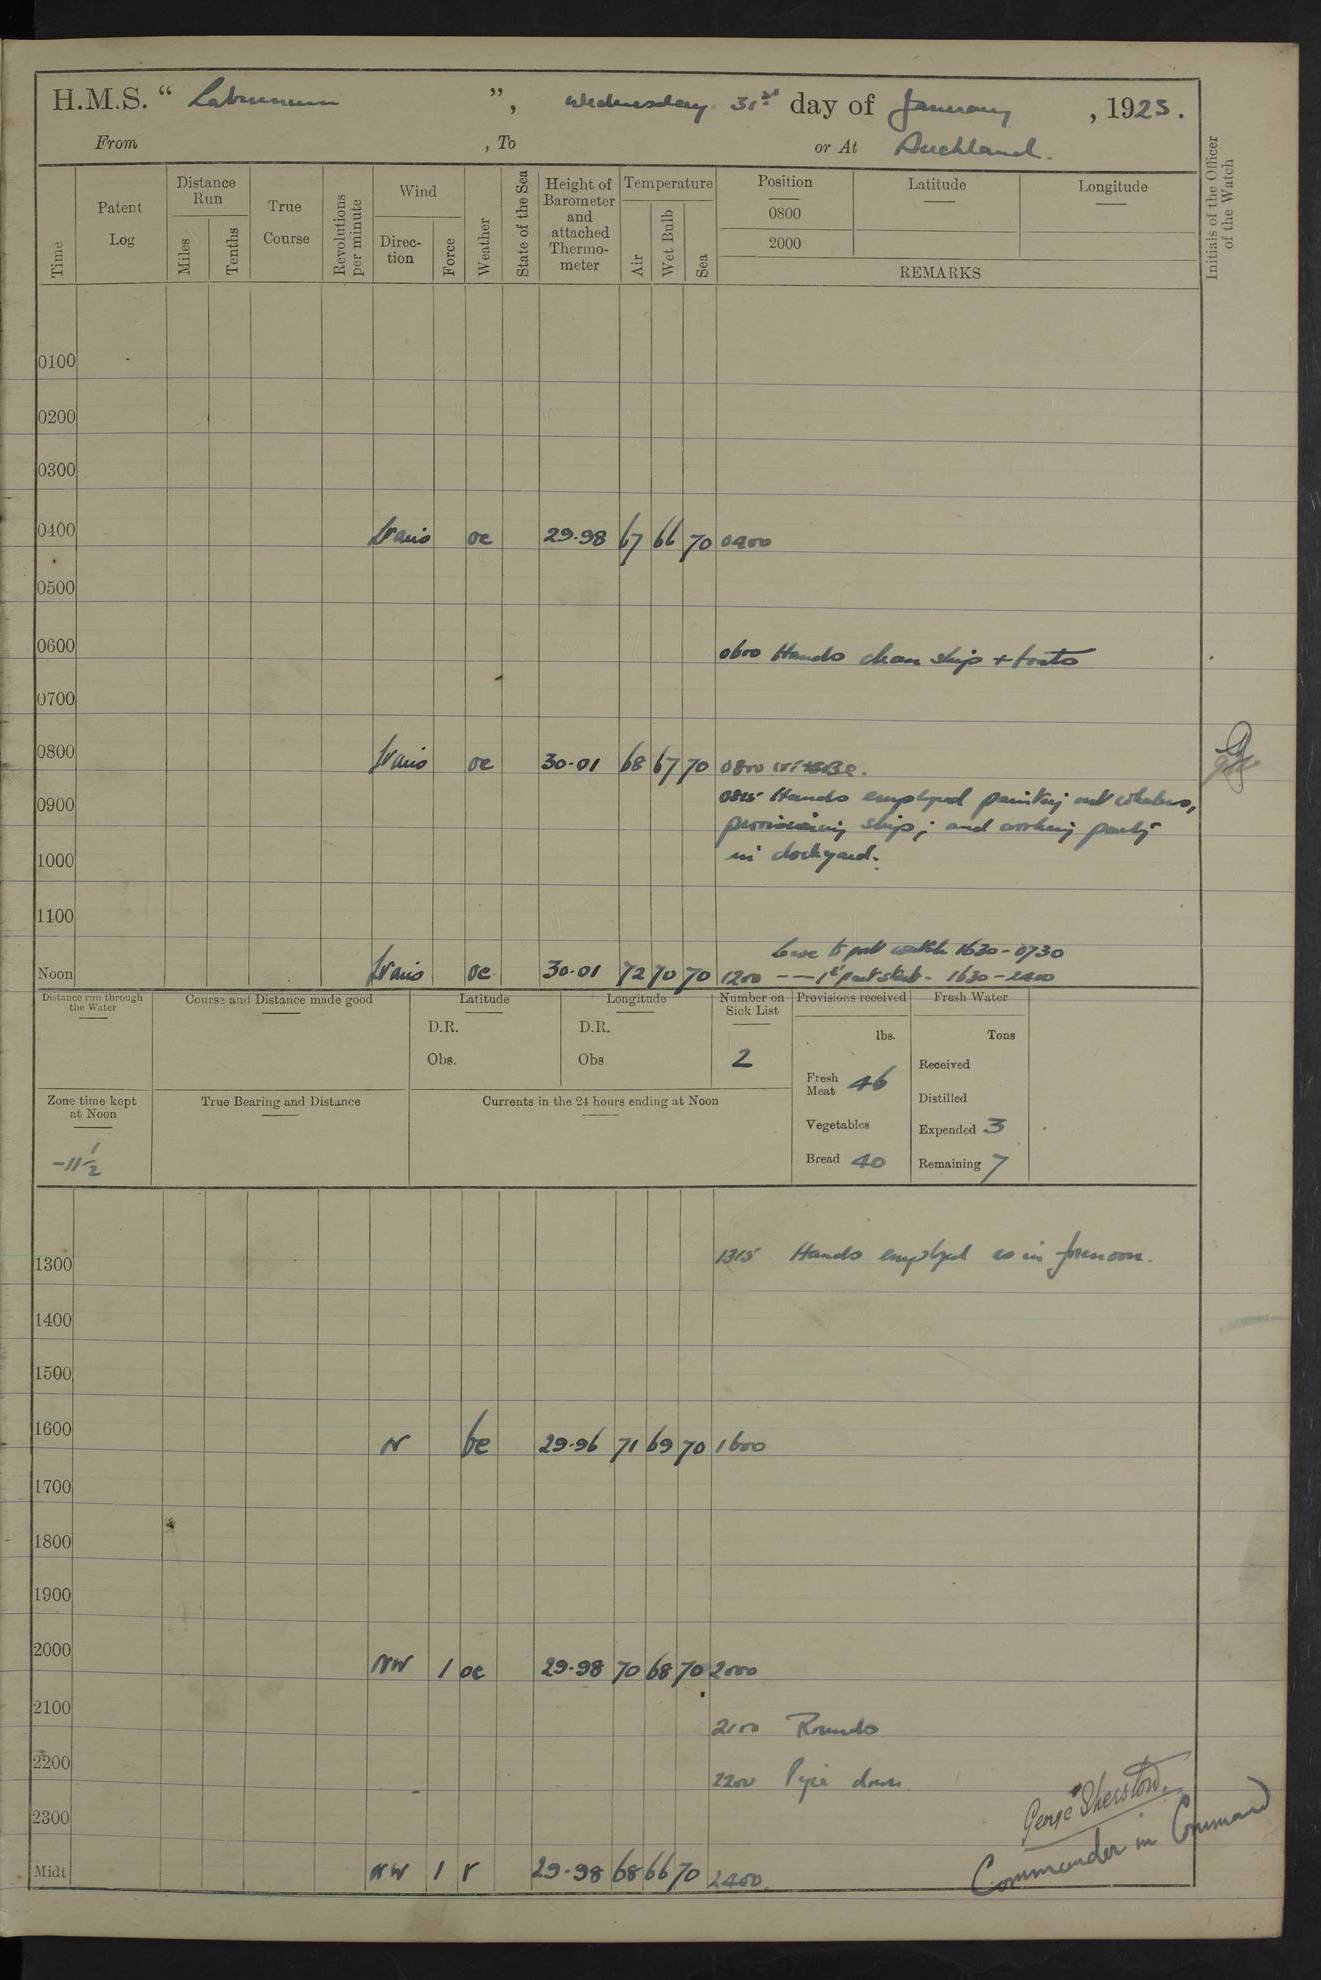 H.M.S. “ Laburnum ”, Wednesday 31st day of January, 1923.
From , To or At Auckland.
Time
Patent Log
Distance Run
Miles
Tenths
True Course
Revolutions per minute
Wind
Direc-tion
Force
Weather
State of the Sea
Height of Barometer and attached Thermo-meter
Temperature
Air
Wet Bulb
Sea
Position
0800
2000
Latitude
Longitude
REMARKS
Initials of the Officer of the Watch
0100
0200
0300
0400 oc 29.98 67 66 70 0400
0500
0600 0600 Hands clean ship + boats
0700
0800 oc 30.01 68 67 70 0800
0900 0815 Hands employed painting out whalers,
provisioning ship; and working party
1000 in dockyard.
1100
Leave to part watch 1630 - 0730
Noon oc 30.01 72 70 70 1200 — — 1st part 1630 - 2400
Distance run through the Water
Course and Distance made good
Latitude
D.R.
Obs.
Longitude
D.R.
Obs
Number on Sick List
2
Provisions received
lbs.
Fresh Meat 46
Vegetables
Bread 40
Fresh Water
Tons
Received
Distilled
Expended 3
Remaining 7
Zone time kept at Noon
-11 1/2
True Bearing and Distance
Currents in the 24 hours ending at Noon
1300 1315 Hands employed as in forenoon.
1400
1500
1600 N bc 29.96 71 69 70 1600
1700
1800
1900
2000 NW 1 oc 29.98 70 68 70 2000
2100 2100 Rounds
2200 2200 Pipe down.
2300
Midt NW 1 r 29.98 68 66 70 2400
George Sherston.
Commander in Command